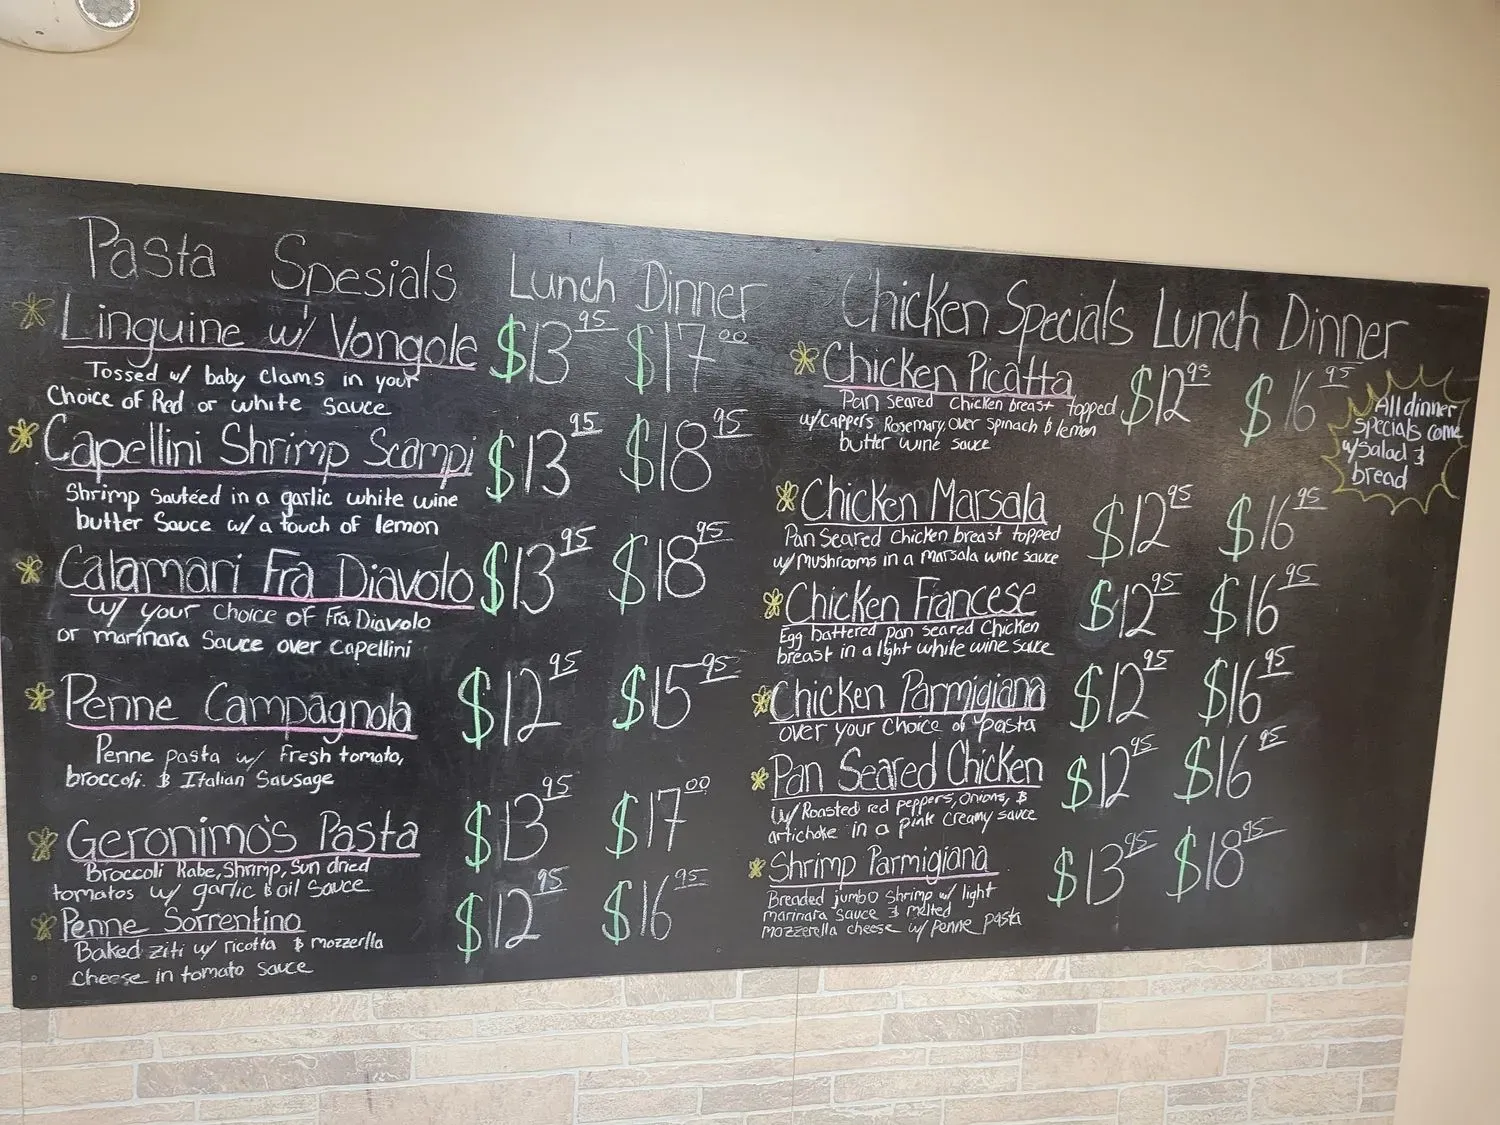 Pasta Spesials Lunch Dinner
Linguine w/ Vongole $13 95 $17 00
Tossed w/ baby clams in your
Choice of Red or white sauce
Capellini Shrimp Scampi $13 95 $18 95
Shrimp sauteed in a garlic white wine
butter sauce w/ a touch of lemon
Calamari Fra Diavolo $13 95 $18 95
w/ your choice of Fra Diavolo
or marinara sauce over capellini
Penne Campagnola $12 95 $15 95
Penne pasta w/ fresh tomato,
broccoli. & Italian Sausage
Geronimo's Pasta $13 95 $17 00
Broccoli Rabe, Shrimp, Sun dried
tomatos w/ garlic & oil sauce
Penne Sorrentino $12 95 $16 95
Baked ziti w/ ricotta & mozzerlla
cheese in tomato sauce
Chicken Specials Lunch Dinner
Chicken Picatta $12 95 $16 95
Pan seared chicken breast topped
w/ Cappers Rosemary, over spinach & lemon
butter wine sauce
Chicken Marsala $12 95 $16 95
Pan Seared Chicken breast topped
w/ mushrooms in a marsala wine sauce
Chicken Francese $12 95 $16 95
Egg battered pan seared chicken
breast in a light white wine sauce
Chicken Parmigiana $12 95 $16 95
over your choice of pasta
Pan Seared Chicken $12 95 $16 95
w/ Roasted red peppers, onions, &
artichoke in a pink creamy sauce
Shrimp Parmigiana $13 95 $18 95
Breaded jumbo shrimp w/ light
marinara sauce & melted
mozzerella cheese w/ penne pasta
All dinner
specials come
w/ salad &
bread